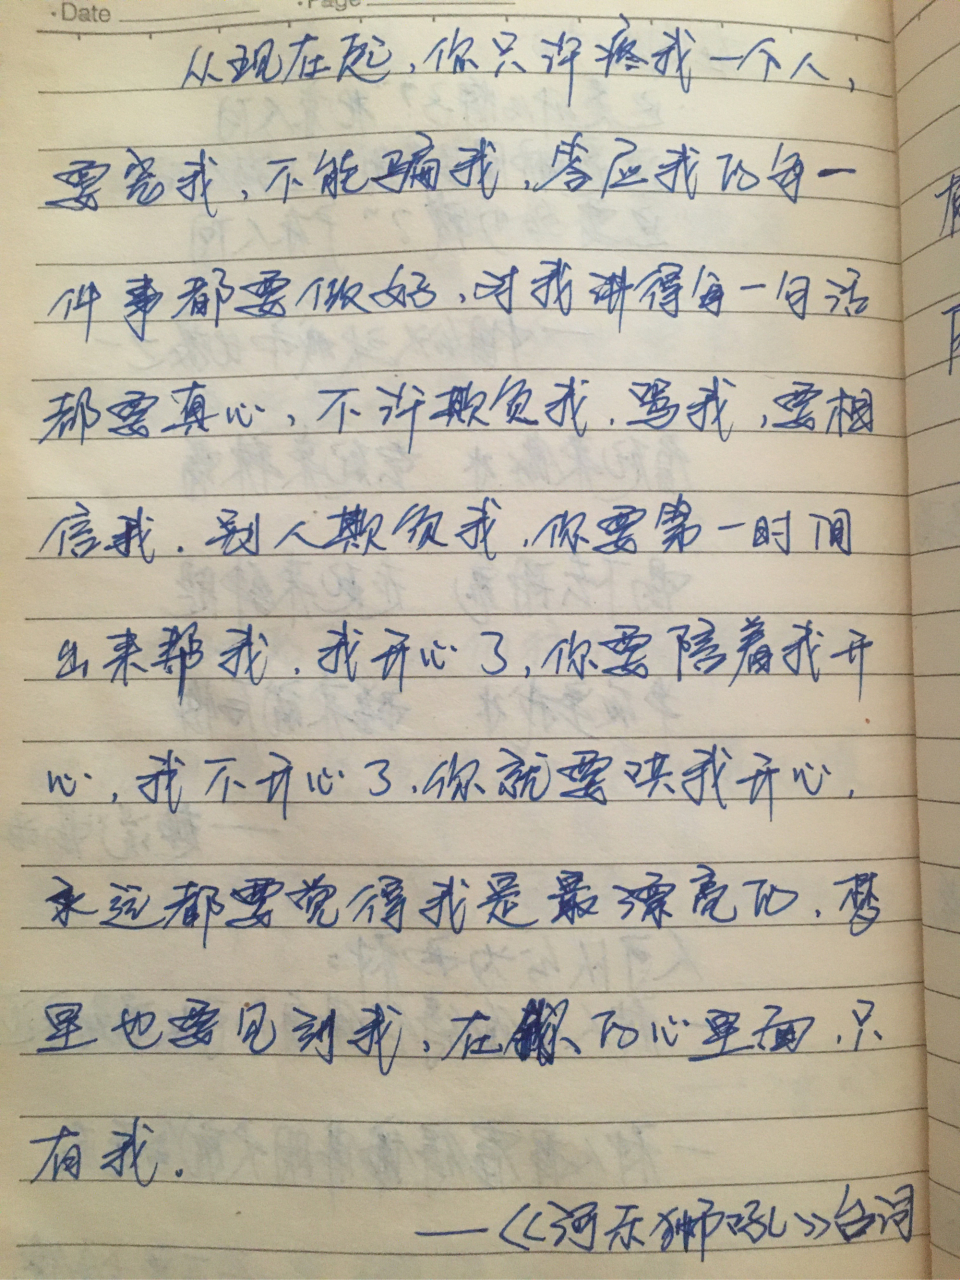 ·Date
·Page
从现在起，你只许疼我一个人，
要宠我，不能骗我，答应我的每一
件事都要做好，对我讲得每一句话
都要真心，不许欺负我，骂我，要相
信我。别人欺负我，你要第一时间
出来帮我，我开心了，你要陪着我开
心，我不开心了，你就要哄我开心，
永远都要觉得我是最漂亮的，梦
里也要见到我，在你的心里面，只
有我。
——《河东狮吼》台词